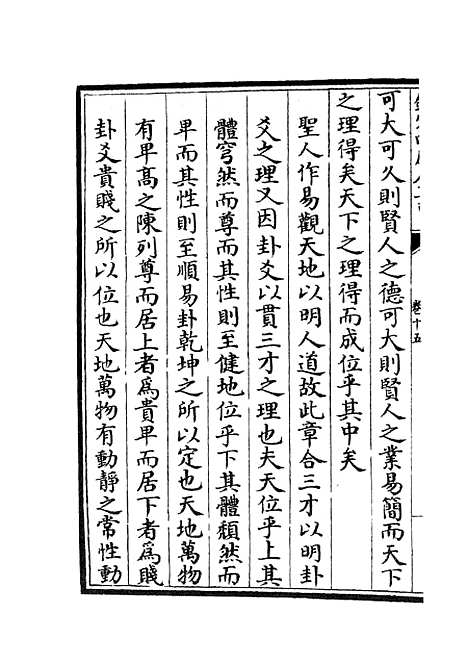 卷十五
可大可久則賢人之德可大則賢人之業易簡而天下
之理得矣天下之理得而成位乎其中矣
聖人作易觀天地以明人道故此章合三才以明卦
爻之理又因卦爻以貫三才之理也夫天位乎上其
體穹然而尊而其性則至健地位乎下其體頽然而
卑而其性則至順易卦乾坤之所以定也天地萬物
有卑髙之陳列尊而居上者為貴卑而居下者為賤
卦爻貴賤之所以位也天地萬物有動靜之常性動